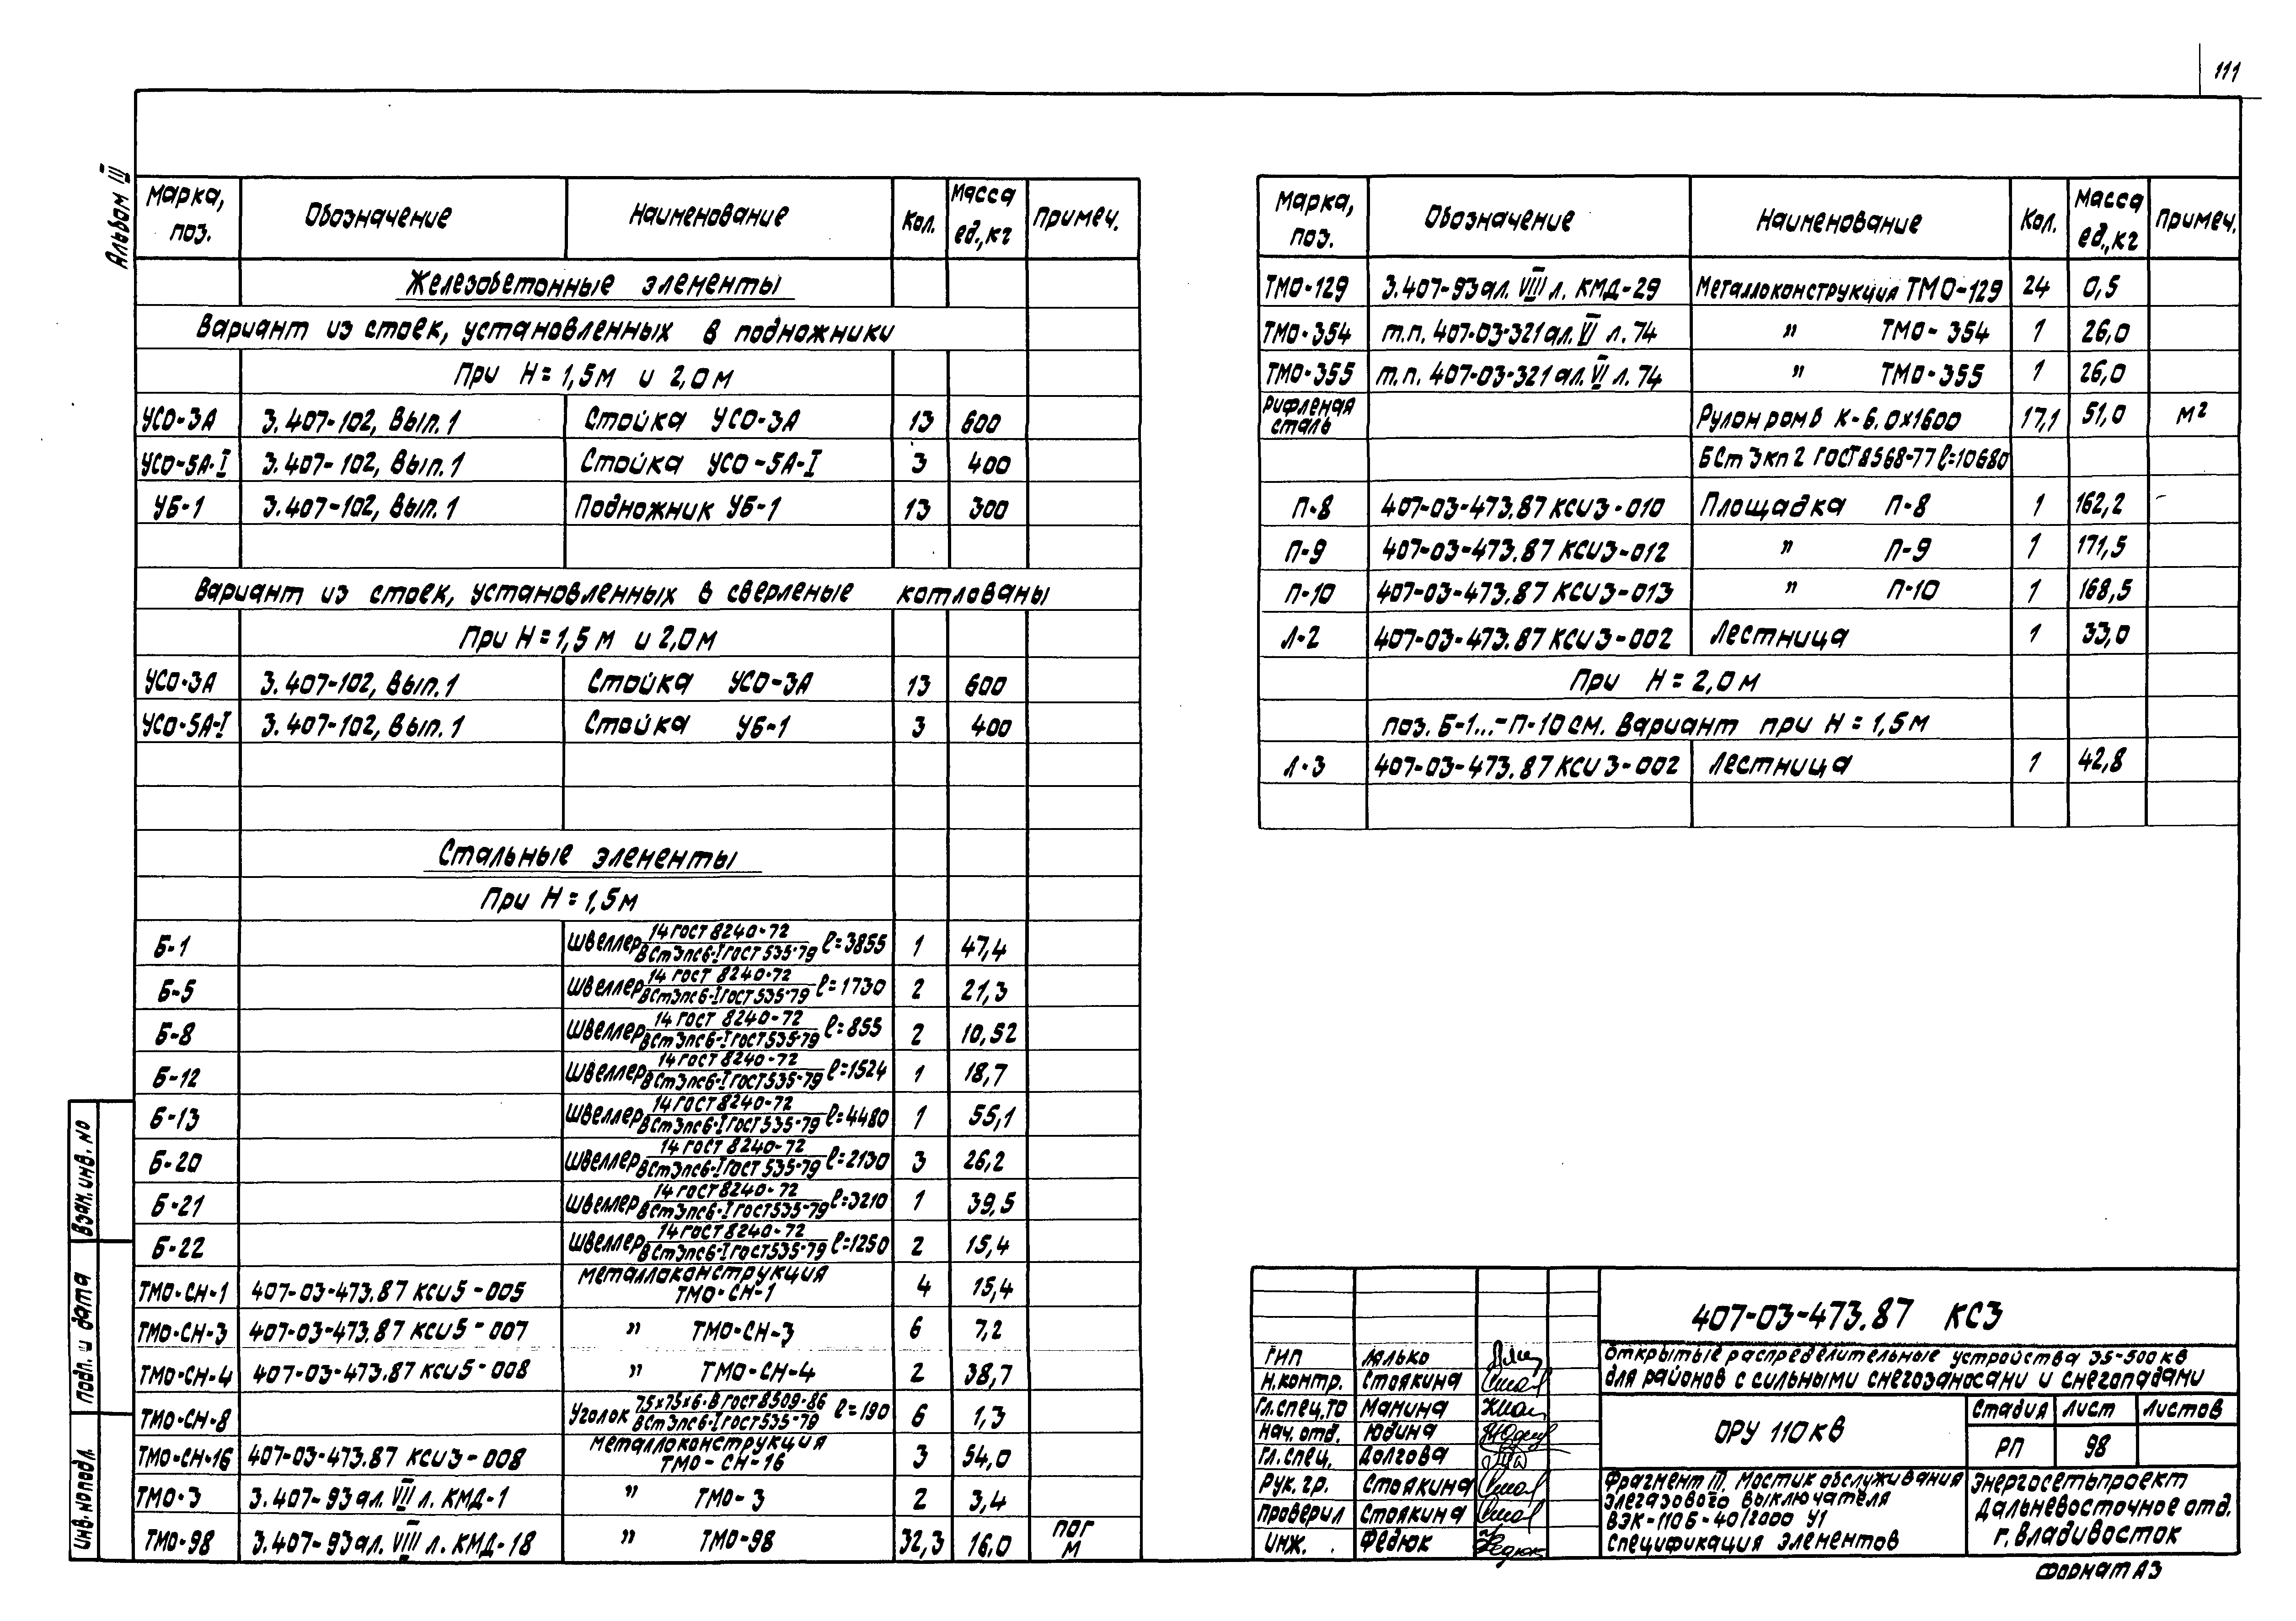 111
Альбом III
Марка, поз. Обозначение Наименование Кол. Масса ед.,кг Примеч.
Железобетонные элементы
Вариант из стоек, установленных в подножники
При Н=1,5м и 2,0м
УСО-3А 3.407-102, Вып.1 Стойка УСО-3А 13 600
УСО-5А-I 3.407-102, Вып.1 Стойка УСО-5А-I 3 400
УБ-1 3.407-102, Вып.1 Подножник УБ-1 13 300
Вариант из стоек, установленных в сверленые котлованы
При Н=1,5м и 2,0м
УСО-3А 3.407-102, Вып.1 Стойка УСО-3А 13 600
УСО-5А-I 3.407-102, Вып.1 Стойка УБ-1 3 400
Стальные элементы
При Н=1,5м
Б-1 Швеллер 14 ГОСТ 8240-72 / ВСт3пс6-I ГОСТ 535-79 ℓ=3855 1 47,4
Б-5 Швеллер 14 ГОСТ 8240-72 / ВСт3пс6-I ГОСТ 535-79 ℓ=1730 2 21,3
Б-8 Швеллер 14 ГОСТ 8240-72 / ВСт3пс6-I ГОСТ 535-79 ℓ=855 2 10,52
Б-12 Швеллер 14 ГОСТ 8240-72 / ВСт3пс6-I ГОСТ 535-79 ℓ=1524 1 18,7
Б-13 Швеллер 14 ГОСТ 8240-72 / ВСт3пс6-I ГОСТ 535-79 ℓ=4480 1 55,1
Б-20 Швеллер 14 ГОСТ 8240-72 / ВСт3пс6-I ГОСТ 535-79 ℓ=2130 3 26,2
Б-21 Швеллер 14 ГОСТ 8240-72 / ВСт3пс6-I ГОСТ 535-79 ℓ=3210 1 39,5
Б-22 Швеллер 14 ГОСТ 8240-72 / ВСт3пс6-I ГОСТ 535-79 ℓ=1250 2 15,4
ТМО-СН-1 407-03-473.87 КСИ5-005 Металлоконструкция ТМО-СН-1 4 15,4
ТМО-СН-3 407-03-473.87 КСИ5-007 " ТМО-СН-3 6 7,2
ТМО-СН-4 407-03-473.87 КСИ5-008 " ТМО-СН-4 2 38,7
ТМО-СН-8 Уголок 75х75х6-В ГОСТ 8509-86 / ВСт3пс6-I ГОСТ 535-79 ℓ=190 6 1,3
ТМО-СН-16 407-03-473.87 КСИ3-008 Металлоконструкция ТМО-СН-16 3 54,0
ТМО-3 3.407-93 ал. VIII л. КМД-1 " ТМО-3 2 3,4
ТМО-98 3.407-93 ал. VIII л. КМД-18 " ТМО-98 32,3 16,0 пог м
Марка, поз. Обозначение Наименование Кол. Масса ед.,кг Примеч.
ТМО-129 3.407-93 ал. VIII л. КМД-29 Металлоконструкция ТМО-129 24 0,5
ТМО-354 т.п. 407-03-321 ал. VI л. 74 " ТМО-354 1 26,0
ТМО-355 т.п. 407-03-321 ал. VI л. 74 " ТМО-355 1 26,0
Рифленая сталь Рулон ромб К-6.0х1600 17,1 51,0 м²
БСт3кп2 ГОСТ 8568-77 ℓ=10680
П-8 407-03-473.87 КСИ3-010 Площадка П-8 1 162,2
П-9 407-03-473.87 КСИ3-012 " П-9 1 171,5
П-10 407-03-473.87 КСИ3-013 " П-10 1 168,5
Л-2 407-03-473.87 КСИ3-002 Лестница 1 33,0
При Н=2,0м
поз. Б-1...-П-10 см. Вариант при Н=1,5м
Л-3 407-03-473.87 КСИ3-002 Лестница 1 42,8
Взам.инв.No
Подп. и дата
Инв.Nоподл.
407-03-473.87 КС3
Открытые распределительные устройства 35-500кВ
для районов с сильными снегозаносами и снегопадами
ГИП Юлько
Н.контр. Стоякина
Гл.спец.ТО Манина
Нач. отд. Юдина
Гл.спец. Долгова
Рук. гр. Стоякина
Проверил Стоякина
Инж. Федюк
ОРУ 110кВ
Стадия Лист Листов
РП 98
Фрагмент III. Мостик обслуживания
элегазового выключателя
ВЭК-110Б-40/2000 У1
Спецификация элементов
Энергосетьпроект
Дальневосточное отд.
г. Владивосток
Формат А3